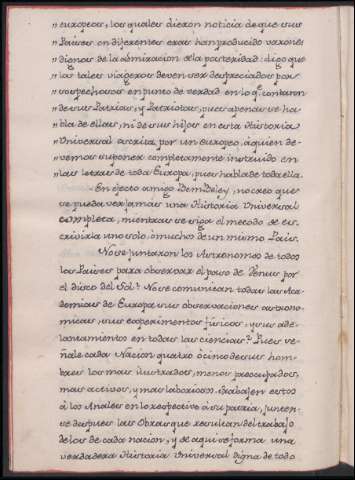 "europeas, las quales dieron noticia de que sus
"Países en diferentes eras han producido varones
"dignos de la admiracion de la posteridad: digo que
"las tales viageras deven ser despreciados por
"sospechosas en punto de verdad en lo q.e contaron
"de sus Patrias, y Patriotas, pues apenas se ha-
"bla de ellas, ni de sus hijos en esta Historia
"Universal escrita por un europeo, á quien de-
"vemos suponer completamente instruido en
"las letras de toda Europa, pues habla de toda ella.
En efecto amigo Ben-Beley, no creo que
se pueda ver jamas una Historia Universal
completa, mientras se siga el metodo de es-
crivirla uno solo, ó muchos de un mismo Pais.
No se juntaron los Astronomos de todos
los Países para observar el paso de Venus por
el disco del Sol? No se comunican todas las Aca-
demias de Europa sus observaciones astrono-
micas, sus experimentos físicos, y sus ade-
lantamientos en todas las ciencias? Pues se-
ñale cada Nacion quatro ó cinco de sus hom-
bres los mas ilustrados, menos preocupados,
mas activos, y mas laboriosos, trabajen estos
á los Anales en lo respective á su patria, junten-
se despues las Obras que resultan del trabajo
de los de cada nacion, y de aqui se forma una
verdadera Historia Universal digna de todo